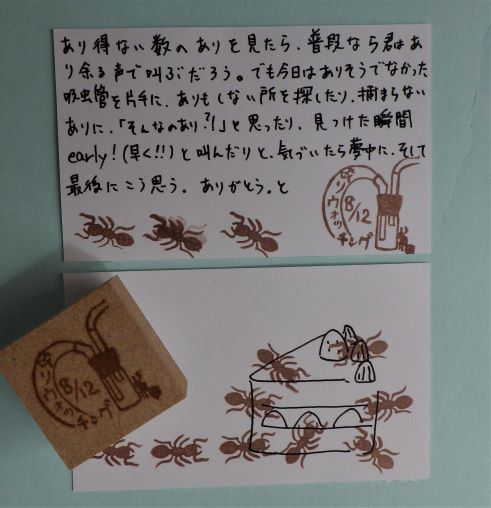 あり得ない数のありを見たら、普段なら君はあ
り余る声で叫ぶだろう。でも今日はありそうでなかった
吸虫管を片手に、ありもしない所を探したり、捕まらない
ありに、「そんなのあり?!」と思ったり、見つけた瞬間
early!(早く!!)と叫んだりと、気づいたら夢中に、そして
最後にこう思う。ありがとう。と
アリウォッチング
8/12
アリウォッチング
8/12